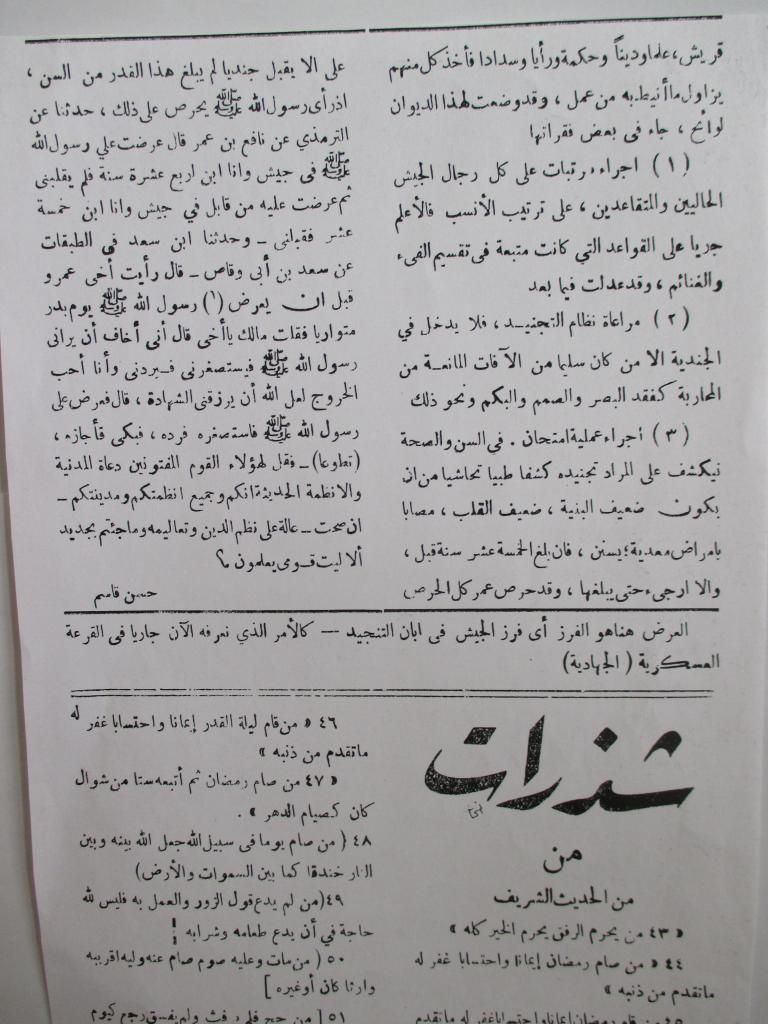 قريش، علما وديناً وحكمة ورأيا وسدادا فأخذ كل منهم
يزاول ما أنيط به من عمل ، وقد وضعت لهذا الديوان
لوائح ، جاء فى بعض فقراتها
(١) اجراء مرتبات على كل رجال الجيش
الحاليين والمتقاعدين ، على ترتيب الأنسب فالأعلم
جريا على القواعد التي كانت متبعة فى تقسيم الفىء
والغنائم ، وقد عدلت فيما بعد
(٢) مراعاة نظام التجنيد ، فلا يدخل في
الجندية الا من كان سليما من الآفات المانعة من
المحاربة كفقد البصر والصمم والبكم ونحو ذلك
(٣) اجراء عملية امتحان . في السن والصحة
فيكشف على المراد تجنيده كشفا طبيا تحاشيا من ان
يكون ضعيف البنية ، ضعيف القلب ، مصابا
بامراض معدية ؛ يسنن ، فان بلغ الخمسة عشر سنة قبل ،
والا ارجىء حتى يبلغها ، وقد حرص عمر كل الحرص
على الا يقبل جنديا لم يبلغ هذا القدر من السن ،
اذ رأى رسول الله ﷺ يحرص على ذلك ، حدثنا عن
الترمذي عن نافع بن عمر قال عرضت علي رسول الله
ﷺ فى جيش وانا ابن اربع عشرة سنة فلم يقلبنى
ثم عرضت عليه من قابل في جيش وانا ابن خمسة
عشر فقبلنى – وحدثنا ابن سعد فى الطبقات
عن سعد بن أبى وقاص – قال رأيت أخى عمرو
قبل ان يعرض (١) رسول الله ﷺ يوم بدر
متواريا فقلت مالك يا أخى قال أنى أخاف أن يرانى
رسول الله ﷺ فيستصغرنى فيردنى وأنا أحب
الخروج لعل الله أن يرزقنى الشهادة ، قال فعرض على
رسول الله ﷺ فاستصغره فرده ، فبكى فأجازه ،
(تطوعا) – فقل لهؤلاء القوم المفتونين دعاة المدنية
والانظمة الحديثة انكم وجميع انظمتكم ومدينتكم –
ان صحت – عالة على نظم الدين وتعاليمه وما جئتم بجديد
ألا ليت قومى يعلمون ؟
حسن قاسم
العرض هنا هو الفرز أى فرز الجيش فى ابان التنجيد — كالأمر الذي نعرفه الآن جاريا فى القرعة
العسكرية ( الجهادية)
شذرات
من
من الحديث الشريف
« ٤٣ من يحرم الرفق يحرم الخير كله »
٤٤ « من صام رمضان إيمانا واحتسابا غفر له
ماتقدم من ذنبه »
٤٥ من قام رمضان إيمانا واحتسابا غفر له ماتقدم
٤٦ « من قام ليلة القدر إيمانا واحتسابا غفر له
ماتقدم من ذنبه »
« ٤٧ من صام رمضان ثم أتبعه ستا من شوال
كان كصيام الدهر » .
٤٨ ( من صام يوما فى سبيل الله جعل الله بينه وبين
النار خندقا كما بين السموات والأرض)
٤٩(من لم يدع قول الزور والعمل به فليس لله
حاجة في أن يدع طعامه وشرابه
٥٠ ( من مات وعليه صوم صام عنه وليه اقريبه
وارثا كان أوغيره ]
٥١ [ من حج فلم يرفث ولم يفسق رجع كيوم